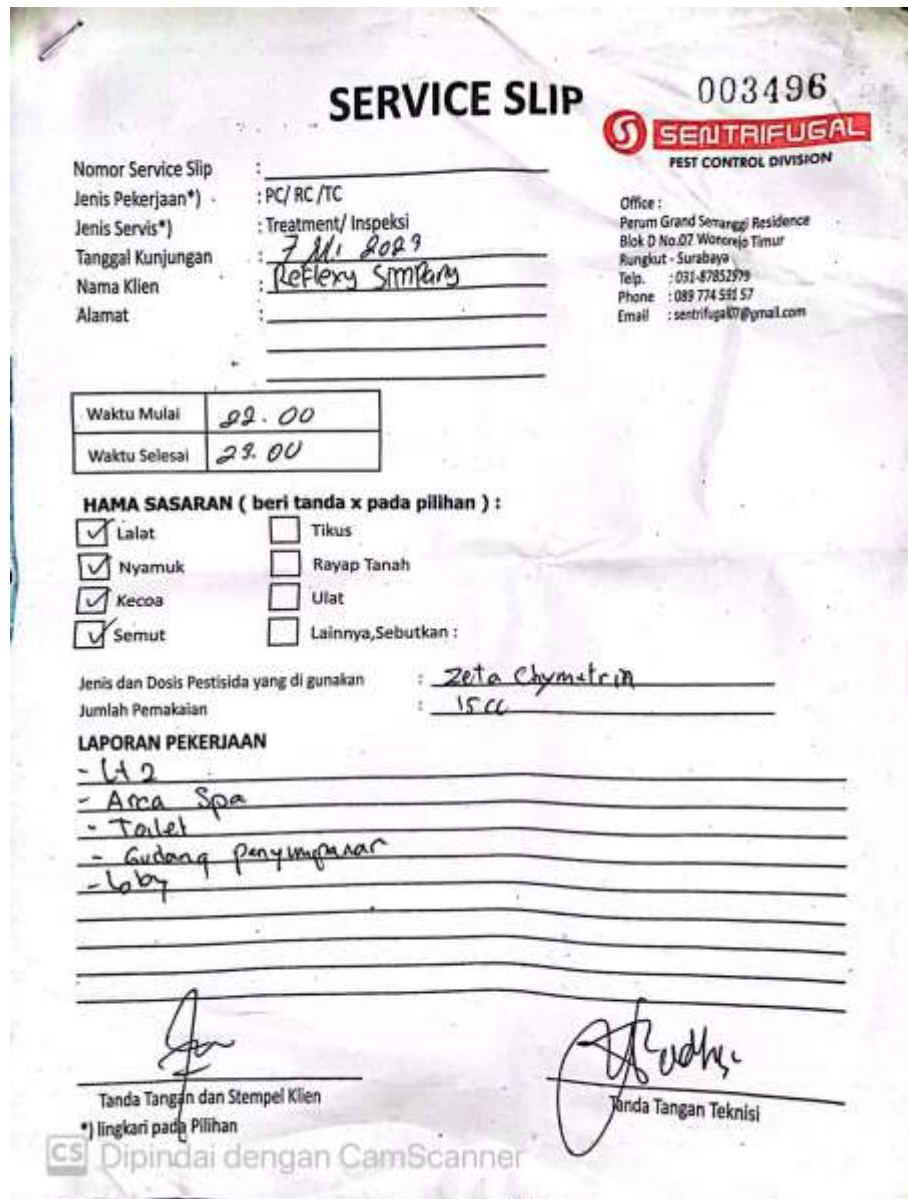 003496
SERVICE SLIP
SENTRIFUGAL
PEST CONTROL DIVISION
Nomor Service Slip :
Jenis Pekerjaan*) : PC/ RC /TC
Jenis Servis*) : Treatment/ Inspeksi
Tanggal Kunjungan : 7
Nama Klien : Reflexy
Alamat :
Office :
Perum Grand Semanggi Residence
Blok D No.07 Wonorejo Timur
Rungkut - Surabaya
Telp. : 031-87852979
Phone : 089 774 591 57
Email : sentrifugal07@gmail.com
Waktu Mulai 22.00
Waktu Selesai 23.00
HAMA SASARAN ( beri tanda x pada pilihan ) :
Lalat Tikus
Nyamuk Rayap Tanah
Kecoa Ulat
Semut Lainnya,Sebutkan :
Jenis dan Dosis Pestisida yang di gunakan : Zeta Chymetrin
Jumlah Pemakaian : 15 cc
LAPORAN PEKERJAAN
- Lt 2
- Area Spa
- Toilet
- Gudang
- Loby
Tanda Tangan dan Stempel Klien
Tanda Tangan Teknisi
*) lingkari pada Pilihan
CS Dipindai dengan CamScanner